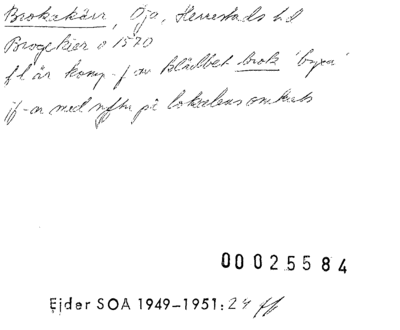 Brokakärr, Öja, Herrestads hd
Brogekier o 1570
fl är komp. f av klädbet brok 'byxa'
jf-n med syftn på lokalens omkrets
00025584
Ejder SOA 1949-1951: 24 ff